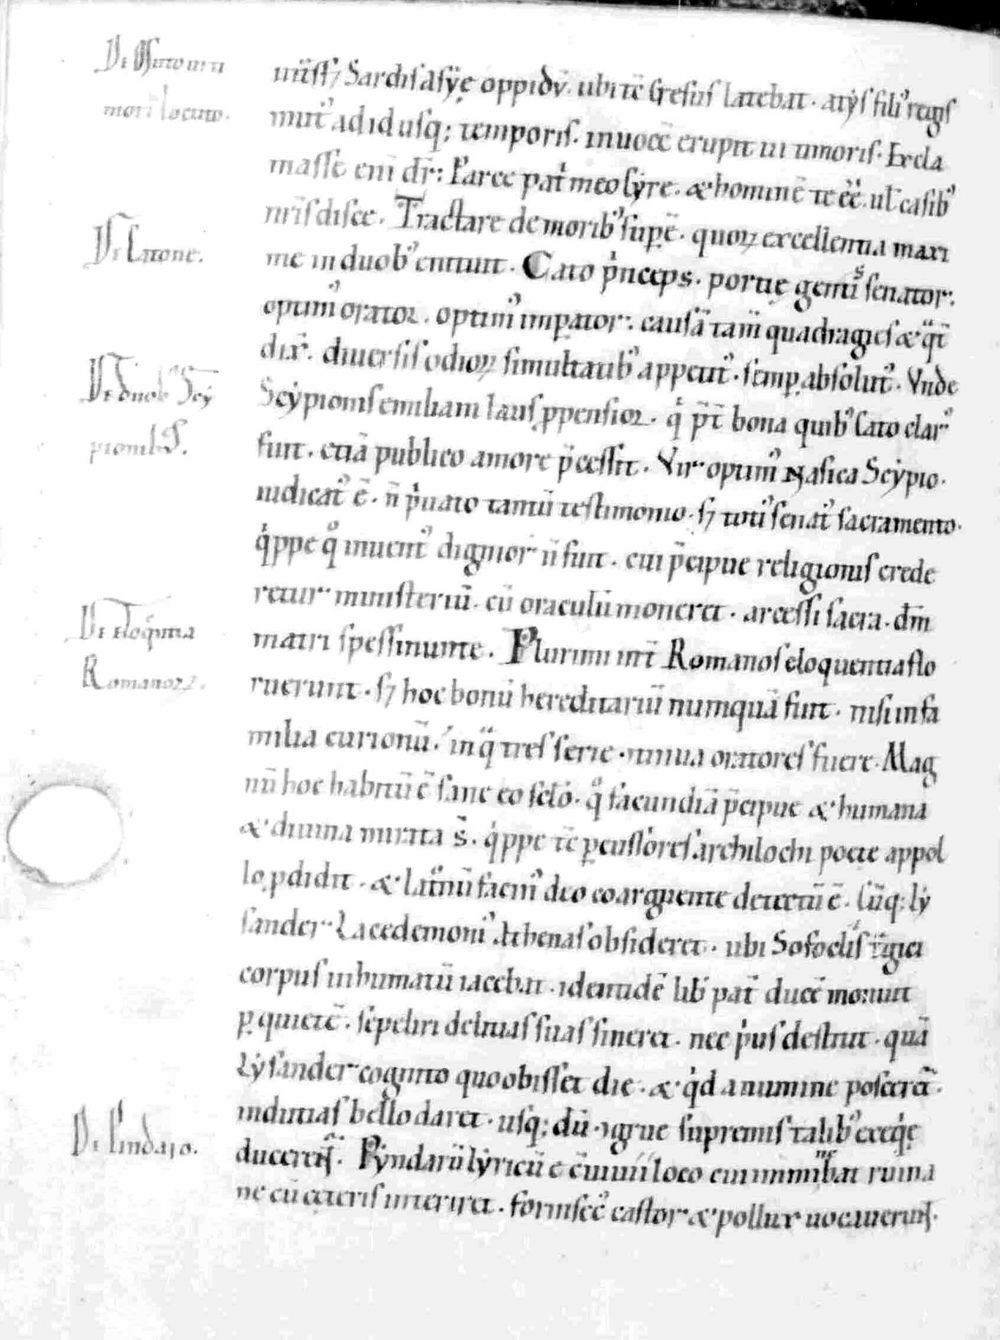 De Muto in ti
mori locuto.
De Catone.
De duob' Scy
pionib' S.
De eloq̄ntia
Romanoꝝ.
De Pindaro.
miss; Sardis asẏe oppidū. ubi tē Cresus latebat. atẏs fili' regis
mut' ad id usq; temporis. in uocē erupit ui timoris. Excla
masse eni dr̄: Parce pat' meo Cẏre. & hominē te ēē. ul' casib'
nr̄is disce. Tractare de morib' supē. quoꝝ excellentia maxi
me in duob' enituit. Cato p'nceps. portię gemis senator.
optim' orator. optim' imꝑator. causā tam̄ quadragies & q̄t'
dix̄. diuersis odioꝝ simultatib' appetit'. semꝑ absolut'. Vnde
Scẏpionis emiliani laus ꝓpensior. q' p̄t' bona quib' Cato clar'
fuit. etiā publico amore p̄cessit. Vir optim' Nasica Scẏpio.
iudicat' ē. n̄ p'uato tantū testimonio. s; toti' senat' sacramento.
q'ppe q° inuent' dignior n̄ fuit. cui p̄cipue religionis crede
retur ministeriū. cū oraculū moneret. arcessi sacra. dm̄
matri spessinunte. Plurimi int' Romanos eloquentia flo
ruerunt. s; hoc bonū hereditariū numquā fuit. nisi in fa
milia curionū. in q̄ tres serie continua oratores fuere. Mag
nū hoc habitū ē sane eo sc̄lo. q° facundiā p̄cipue & humana
& diuina mirata s̄. q'ppe tē ꝑcussores archilochi poete appol
lo ꝓdidit. & latronū facin' deo coarguente detectū ē. Cūq; lẏ
sander Lacedemoni' Athenas obsideret. ubi Sofoclis tragici
corpus inhumatū iacebat. identidē lib' pat' ducē monuit
ꝑ quietē. sepeliri delicias suas sineret. nec p'us destitit. quā
Lẏsander cognito quo obisset die. & q'd a numine posceret.
inditias bello daret. usq; dū ꝯgrue supremis talib' exeq̄e
ducerent. Pẏndarū lẏricū e cōuiuii loco cui imminebat ruina
ne cū ceteris interiret. forinsec' castor & pollux uocauerunt.